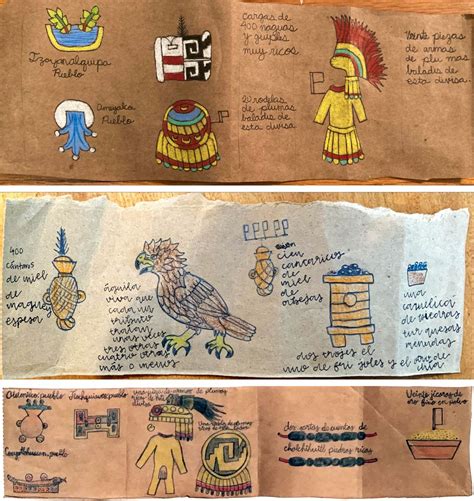 Tzoyanalquipa
Pueblo
cargas de
400 naguas
y guipiles
muy ricos
Veinte piezas
de armas
de plu mas
baladis de
esta divisa.
Ameyalco
Pueblo
20 rodelas
de plumas
baladis de
esta divisa
400
cántaros
de miel
de
maguey
espesa
águila
viva que
cada un
tributo
traían
unas veces
tres otras
cuatro otras
más o menos
cien
cantaricos
de
miel de
abejas
dos trojes el
uno de fri joles y el otro de
una
de piedras
tur quesas
menudas
pueblo
pueblo
pueblo
de plumas
dos sartas de cuentas de
chalchihuitl piedras ricas
Veinte jícaras de
oro fino en polvo